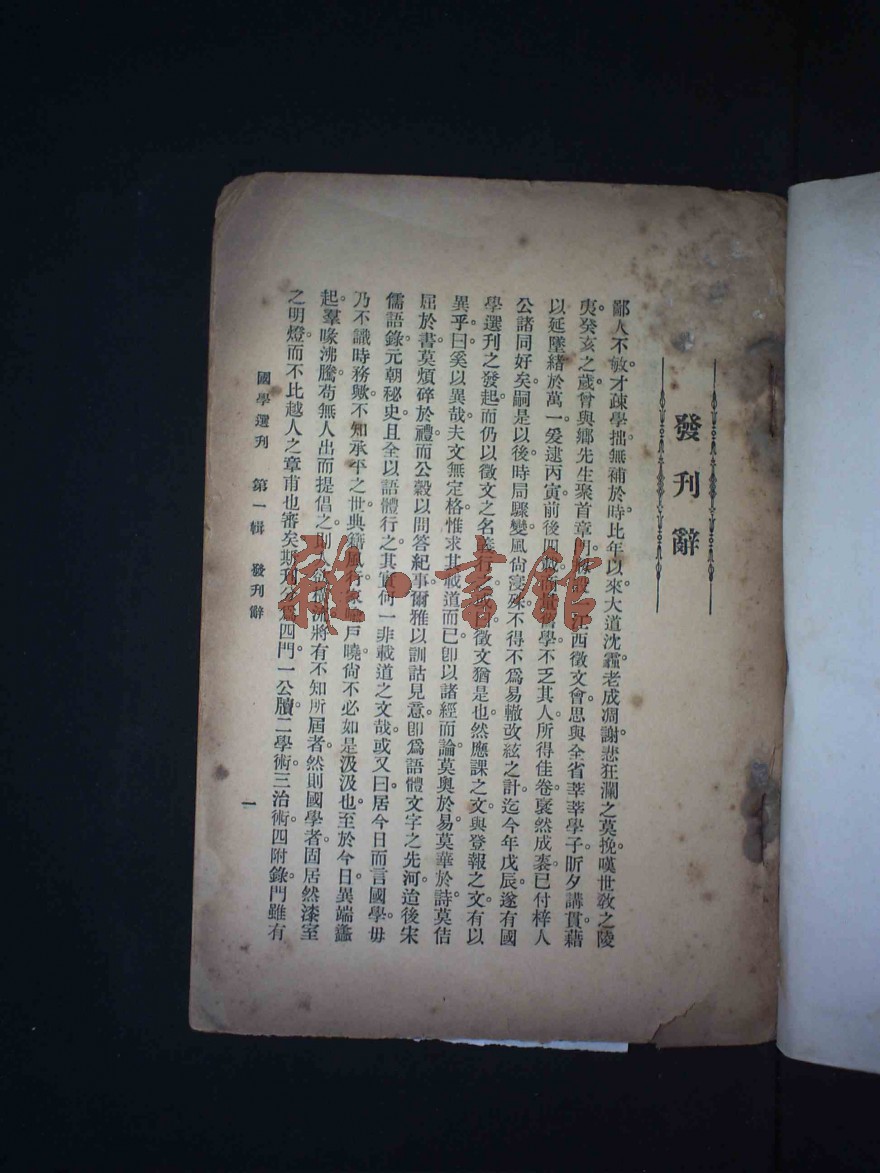 發刊辭
鄙人不敏。才疎學拙。無補於時。比年以來。大道沈霾。老成凋謝。悲狂瀾之莫挽。嘆世敎之陵
夷。癸亥之歲。曾與鄉先生聚首章門。 江西徵文會。思與全省莘莘學子。昕夕講貫。藉
以延墜緒於萬一。爰逮丙寅。前後四載。 學不乏其人。所得佳卷。裒然成袠。已付梓人。
公諸同好矣。嗣是以後。時局驟變。風尙寖殊。不得不爲易轍改絃之計。迄今年戊辰。遂有國
學選刊之發起。而仍以徵文之名 行之。 徵文猶是也。然應課之文。與登報之文。有以
異乎。曰奚以異哉。夫文無定格。惟求其載道而已。卽以諸經而論。莫奧於易。莫華於詩。莫佶
屈於書。莫煩碎於禮。而公穀以問答紀事。爾雅以訓詁見意。卽爲語體文字之先河。迨後宋
儒語錄。元朝秘史。且全以語體行之。其實何一非載道之文哉。或又曰。居今日而言國學。毋
乃不識時務歟。不知承平之世。典籍風行。家 戶曉。尙不必如是汲汲也。至於今日。異端蠭
起。羣喙沸騰。苟無人出而提倡之。則人欲橫流。將有不知所屆者。然則國學者。固居然漆室
之明燈。而不比越人之章甫也審矣。斯刊分爲四門。一公牘。二學術。三治術。四附錄。門雖有
國學選刊 第一輯 發刊辭
一
雜·書館